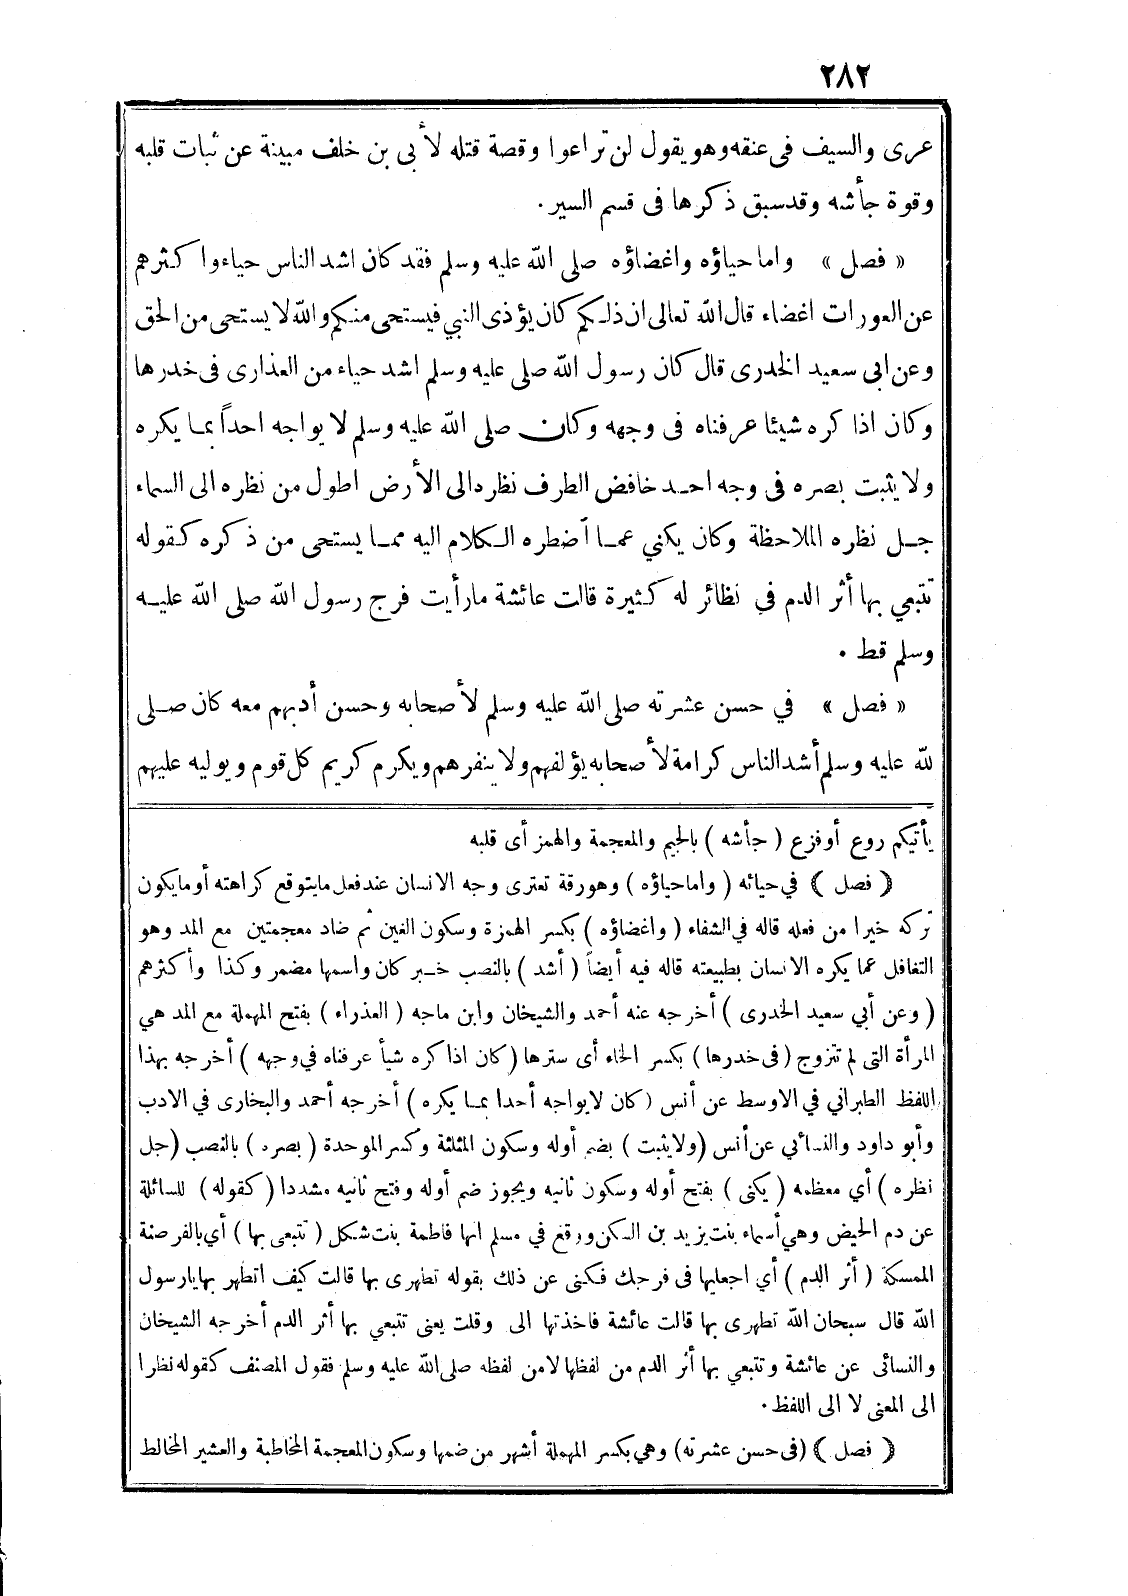 ٢٨٢
عرى والسيف فى عنقه وهو يقول لن تراعوا وقصة قتله لأبى بن خلف مبينة عن ثبات قلبه
وقوة جأشه وقد سبق ذكرها فى قسم السير .
« فصل » واما حياؤه واغضاؤه صلى الله عليه وسلم فقد كان اشد الناس حياء واكثرهم
عن العورات اغضاء قال الله تعالى ان ذلكم كان يؤذى النبي فيستحى منكم والله لا يستحى من الحق
وعن ابى سعيد الخدرى قال كان رسول الله صلى عليه وسلم اشد حياء من العذارى فى خدرها
وكان اذا كره شيئا عرفناه فى وجهه وكان صلى الله عليه وسلم لا يواجه احداً بما يكره
ولا يثبت بصره فى وجه احد خافض الطرف نظره الى الأرض اطول من نظره الى السماء
جل نظره الملاحظة وكان يكني عما أضطره الكلام اليه مما يستحى من ذكره كقوله
تتبعي بها أثر الدم في نظائر له كثيرة قالت عائشة ما رأيت فرج رسول الله صلى الله عليه
وسلم قط .
« فصل » في حسن عشرته صلى الله عليه وسلم لأصحابه وحسن أدبهم معه كان صلى
لله عليه وسلم أشد الناس كرامة لأصحابه يؤلفهم ولا ينفرهم ويكرم كريم كل قوم ويوليه عليهم
يأتيكم روع أو فزع ( جأشه ) بالجيم والمعجمة والهمز أى قلبه
( فصل ) في حيائه ( واما حياؤه ) وهو رقة تعترى وجه الانسان عند فعل ما يتوقع كراهته أو ما يكون
تركه خيرا من فعله قاله في الشفاء ( واغضاؤه ) بكسر الهمزة وسكون الغين ثم ضاد معجمتين مع المد وهو
التغافل عما يكره الانسان بطبيعته قاله فيه أيضاً ( أشد ) بالنصب خبر كان واسمها مضمر وكذا وأكثرهم
( وعن أبي سعيد الخدرى ) أخرجه عنه أحمد والشيخان وابن ماجه ( العذراء ) بفتح المهملة مع المد هي
المرأة التى لم تتزوج ( فى خدرها ) بكسر الخاء أى سترها ( كان اذا كره شيأ عرفناه في وجهه ) أخرجه بهذا
اللفظ الطبراني في الاوسط عن أنس ( كان لا يواجه أحدا بما يكره ) أخرجه أحمد والبخارى في الادب
وأبو داود والنسائي عن أنس ( ولا يثبت ) بضم أوله وسكون المثلثة وكسر الموحدة ( بصره ) بالنصب ( جل
نظره ) أي معظمه ( يكنى ) بفتح أوله وسكون ثانيه ويجوز ضم أوله وفتح ثانيه مشددا ( كقوله ) للسائلة
عن دم الحيض وهي أسماء بنت يزيد بن السكن ووقع في مسلم انها فاطمة بنت شكل ( تتبعى بها ) أي بالفرصة
الممسكة ( أثر الدم ) أي اجعليها فى فرجك فكنى عن ذلك بقوله تطهرى بها قالت كيف اتطهر بها يارسول
الله قال سبحان الله تطهرى بها قالت عائشة فاخذتها الى وقلت يعنى تتبعي بها أثر الدم أخرجه الشيخان
والنسائى عن عائشة وتتبعي بها أثر الدم من لفظها لا من لفظه صلى الله عليه وسلم فقول المصنف كقوله نظرا
الى المعنى لا الى اللفظ .
( فصل ) ( فى حسن عشرته ) وهي بكسر المهملة أشهر من ضمها وسكون المعجمة المخاطبة والعشير المخالط